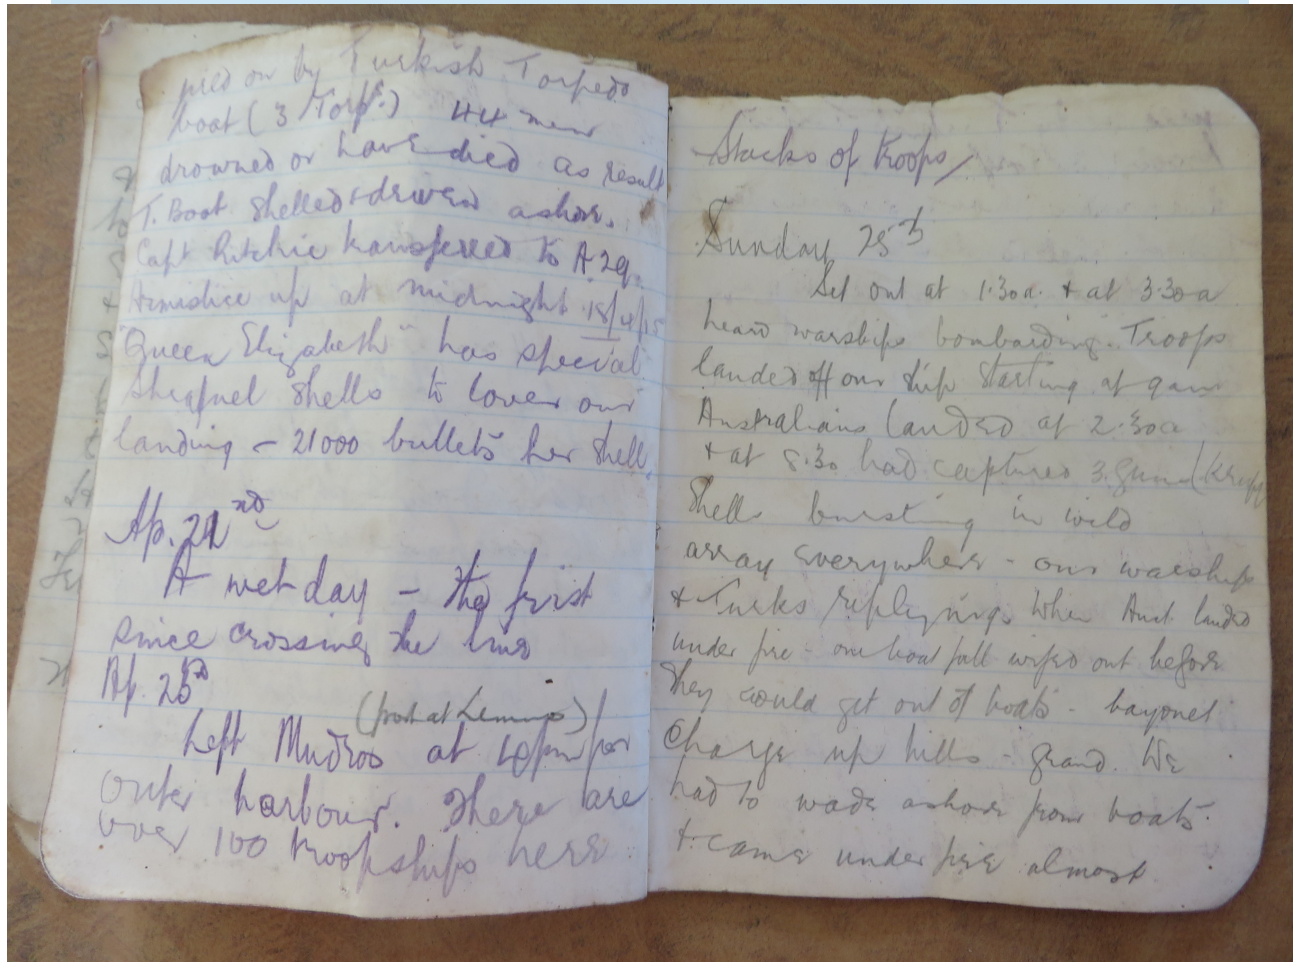 pied on by Turkish Torpedo
boat (3 Torps.) 44 men
drowned or have died as result
T. Boat shelled & drived ashore.
Capt Ritchie transferred to A 29.
Armistice up at midnight 18/4/15
"Queen Elizabeth" has special
Shrapnel shells to cover our
landing – 21000 bullets her shell.
Ap. 22nd
A wet day – the first
since crossing the line
Ap. 23rd
(port at Lemnos)
Left Mudros at 4pm for
outer harbour. There are
over 100 troopships here
Stacks of troops,
Sunday 25th
Set out at 1.30a. & at 3.30a
heard warships bombarding. Troops
landed off our ship starting at 9am
Australians landed at 2.30a
& at 8.30 had captured 3 guns (Krupp
Shells bursting in wild
array everywhere – our warships
& Turks replying. When Aust. landed
under fire – one boat full wiped out before
they could get out of boats – bayonet
charge up hills – grand. We
had to wade ashore from boats
& came under fire almost